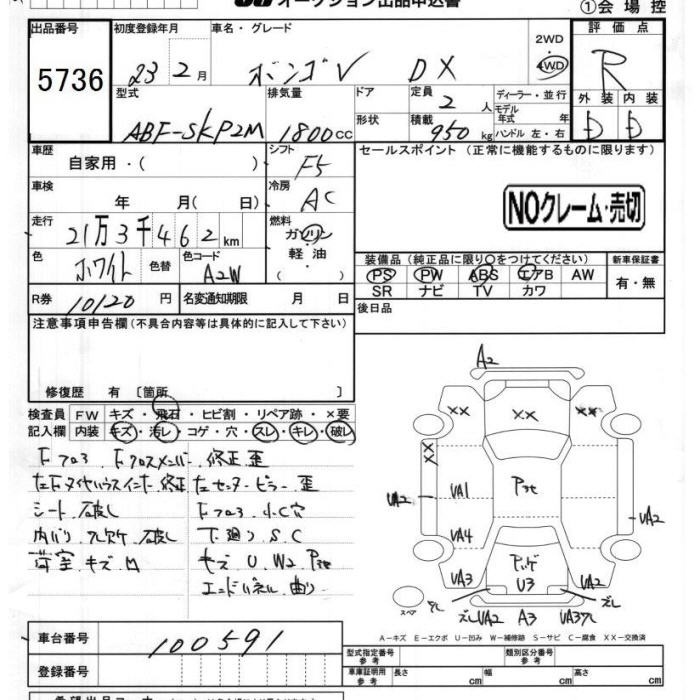 オークション出品申込書
①会場控
出品番号 初度登録年月 車名・グレード 評価点
5736 23 2月 ボンゴV DX 2WD 4WD R
型式 排気量 ドア 定員 2人 ディーラー・並行 外装 内装
ABF-SKP2M 1800cc 形状 積載 950kg モデル年式 年 ハンドル 左・右 D D
車歴 自家用・( ) シフト F5 セールスポイント(正常に機能するものに限ります)
車検 年 月( 日) 冷房 AC
NOクレーム・売切
走行 21万3千462km 燃料 ガソリン・軽油 ( )
色 ホワイト 色替 色コード A2W
装備品(純正品に限り○をつけてください) 新車保証書
PS PW ABS エアB AW 有・無
SR ナビ TV カワ
R券 10120円 名変通知期限 月 日
後日品
注意事項申告欄(不具合内容等は具体的に記入して下さい)
修復歴 有 〔箇所 〕
検査員 FW キズ・飛石・ヒビ割・リペア跡・×要
記入欄 内装 キズ・汚レ・コゲ・穴・スレ・キレ・破レ
Fフロア Fクロスメンバー 修正 歪
左Fタイヤハウスインナー 修正 左センターピラー 歪
シート 破レ Fフロア 小C穴
内バリ 欠 破レ 下廻り S.C
荷室 キズ M キズ U W2
エンドパネル 曲リ
A2
XX XX XX
XX
UA2 UA1 UA2
UA4
UA3 U3 UA2
スペア ズレ UA2 A3 UA3 ズレ
A-キズ E-エクボ U-凹み W-補修跡 S-サビ C-腐食 XX-交換済
車台番号 100591
型式指定番号 参考 類別区分番号 参考
登録番号
車庫証明用 参考 長さ cm 幅 cm 高さ cm